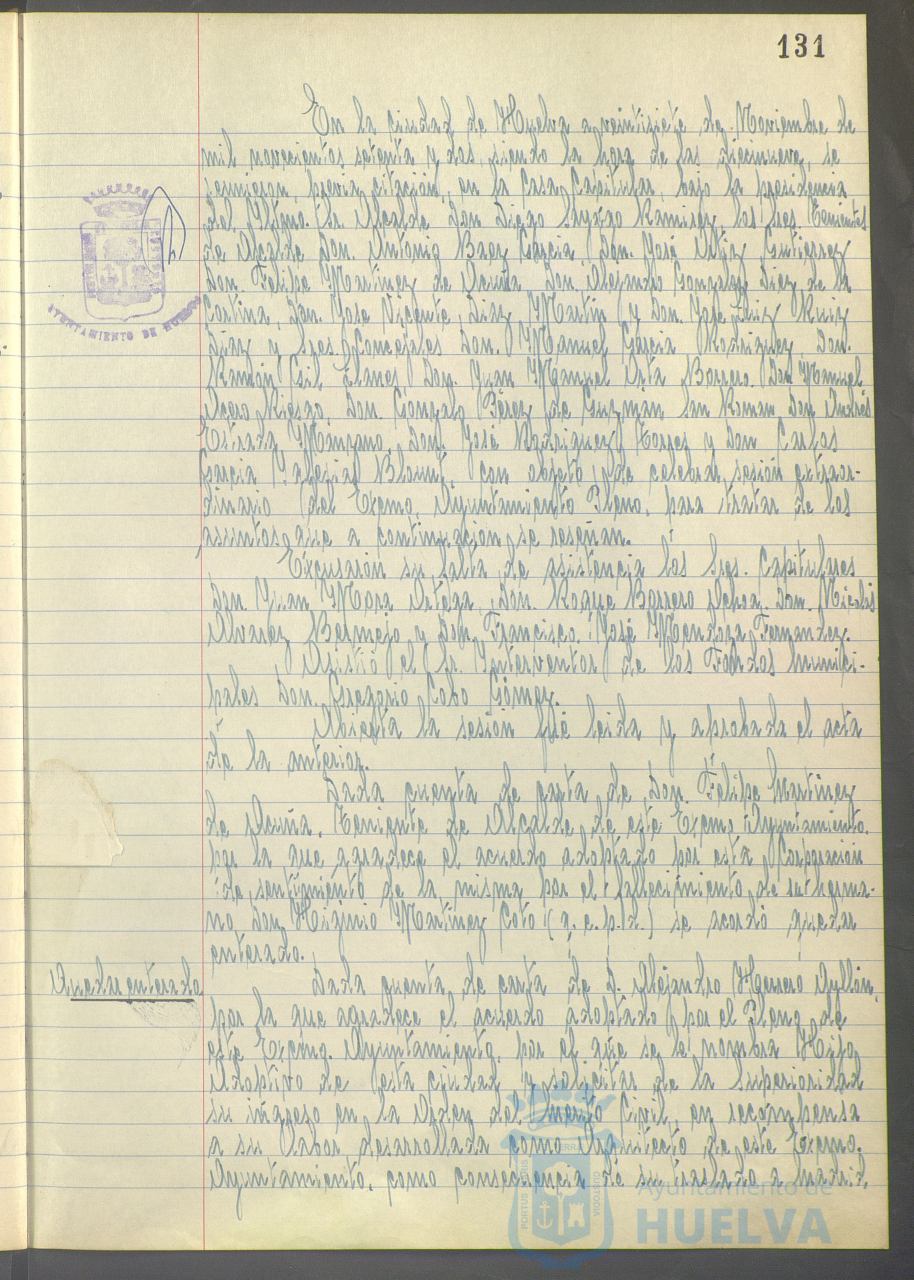 131
En la ciudad de Huelva a veintisiete de Noviembre de
mil novecientos setenta y dos, siendo la hora de las diecinueve, se
reunieron, previa citación, en la Casa Capitular, bajo la presidencia
del Iltmo. Sr. Alcalde Don Diego Ramirez los Sres. Tenientes
de Alcalde Don. Antonio Baez Garcia Don. José Ortiz Gutierrez
Don. Felipe Martinez de Acuña Don. Alejandro Gonzalez Diez de la
Cortina, Don. Jose Vicente Diaz Martin y Don. José Luiz Ruiz
Diaz y Sres. Concejales Don. Manuel Garcia Rodriguez, Don.
Ramón Gil Don. Juan Manuel Orta Borrero. Don Manuel
Acero Riesgo, Don. Gonzalo Pérez de Guzmán San Roman, Don Andrés
Estrada Don. José Rodriguez Torres y Don Carlos
Garcia Blount, con objeto de celebrar sesión extraor-
dinario del Excmo. Ayuntamiento Pleno, para tratar de los
asuntos que a continuación se reseñan.
Excusarón su falta de asistencia los Sres. Capitulares
Don. Juan Mora Ortega, Don. Roque Barrero Ochoa, Don. Nicolás
Alvarez Bermejo y Don. Francisco José Mendoza Fernandez.
Asistió el Sr. Interventor de los Fondos Munici-
pales Don. Gregorio Cobo Gómez.
Abierta la sesión fué leida y aprobada el acta
de la anterior.
Dada cuenta de carta de Don. Felipe Martinez
de Acuña, Teniente de Alcalde de este Excmo Ayuntamiento.
por la que agradece el acuerdo adoptado por esta Corporación
de sentimiento de la misma por el fallecimiento de su herma-
no Don Higinio Martinez Coto (q.e.p.d.) se acordó quedar
enterado.
Quedar enterado
Dada cuenta de carta de D. Alejandro Herrero Ayllón,
por la que agradece el acuerdo adoptado por el Pleno de
este Excmo. Ayuntamiento, por el que se le nombra Hijo
Adoptivo de esta ciudad y solicitar de la Superioridad
su ingreso en la Orden del Merito Civil, en recompensa
a su labor desarrollada como Arquitecto de este Excmo.
Ayuntamiento, como consecuencia de su traslado a Madrid,
AYUNTAMIENTO DE HUELVA
Ayuntamiento de
HUELVA